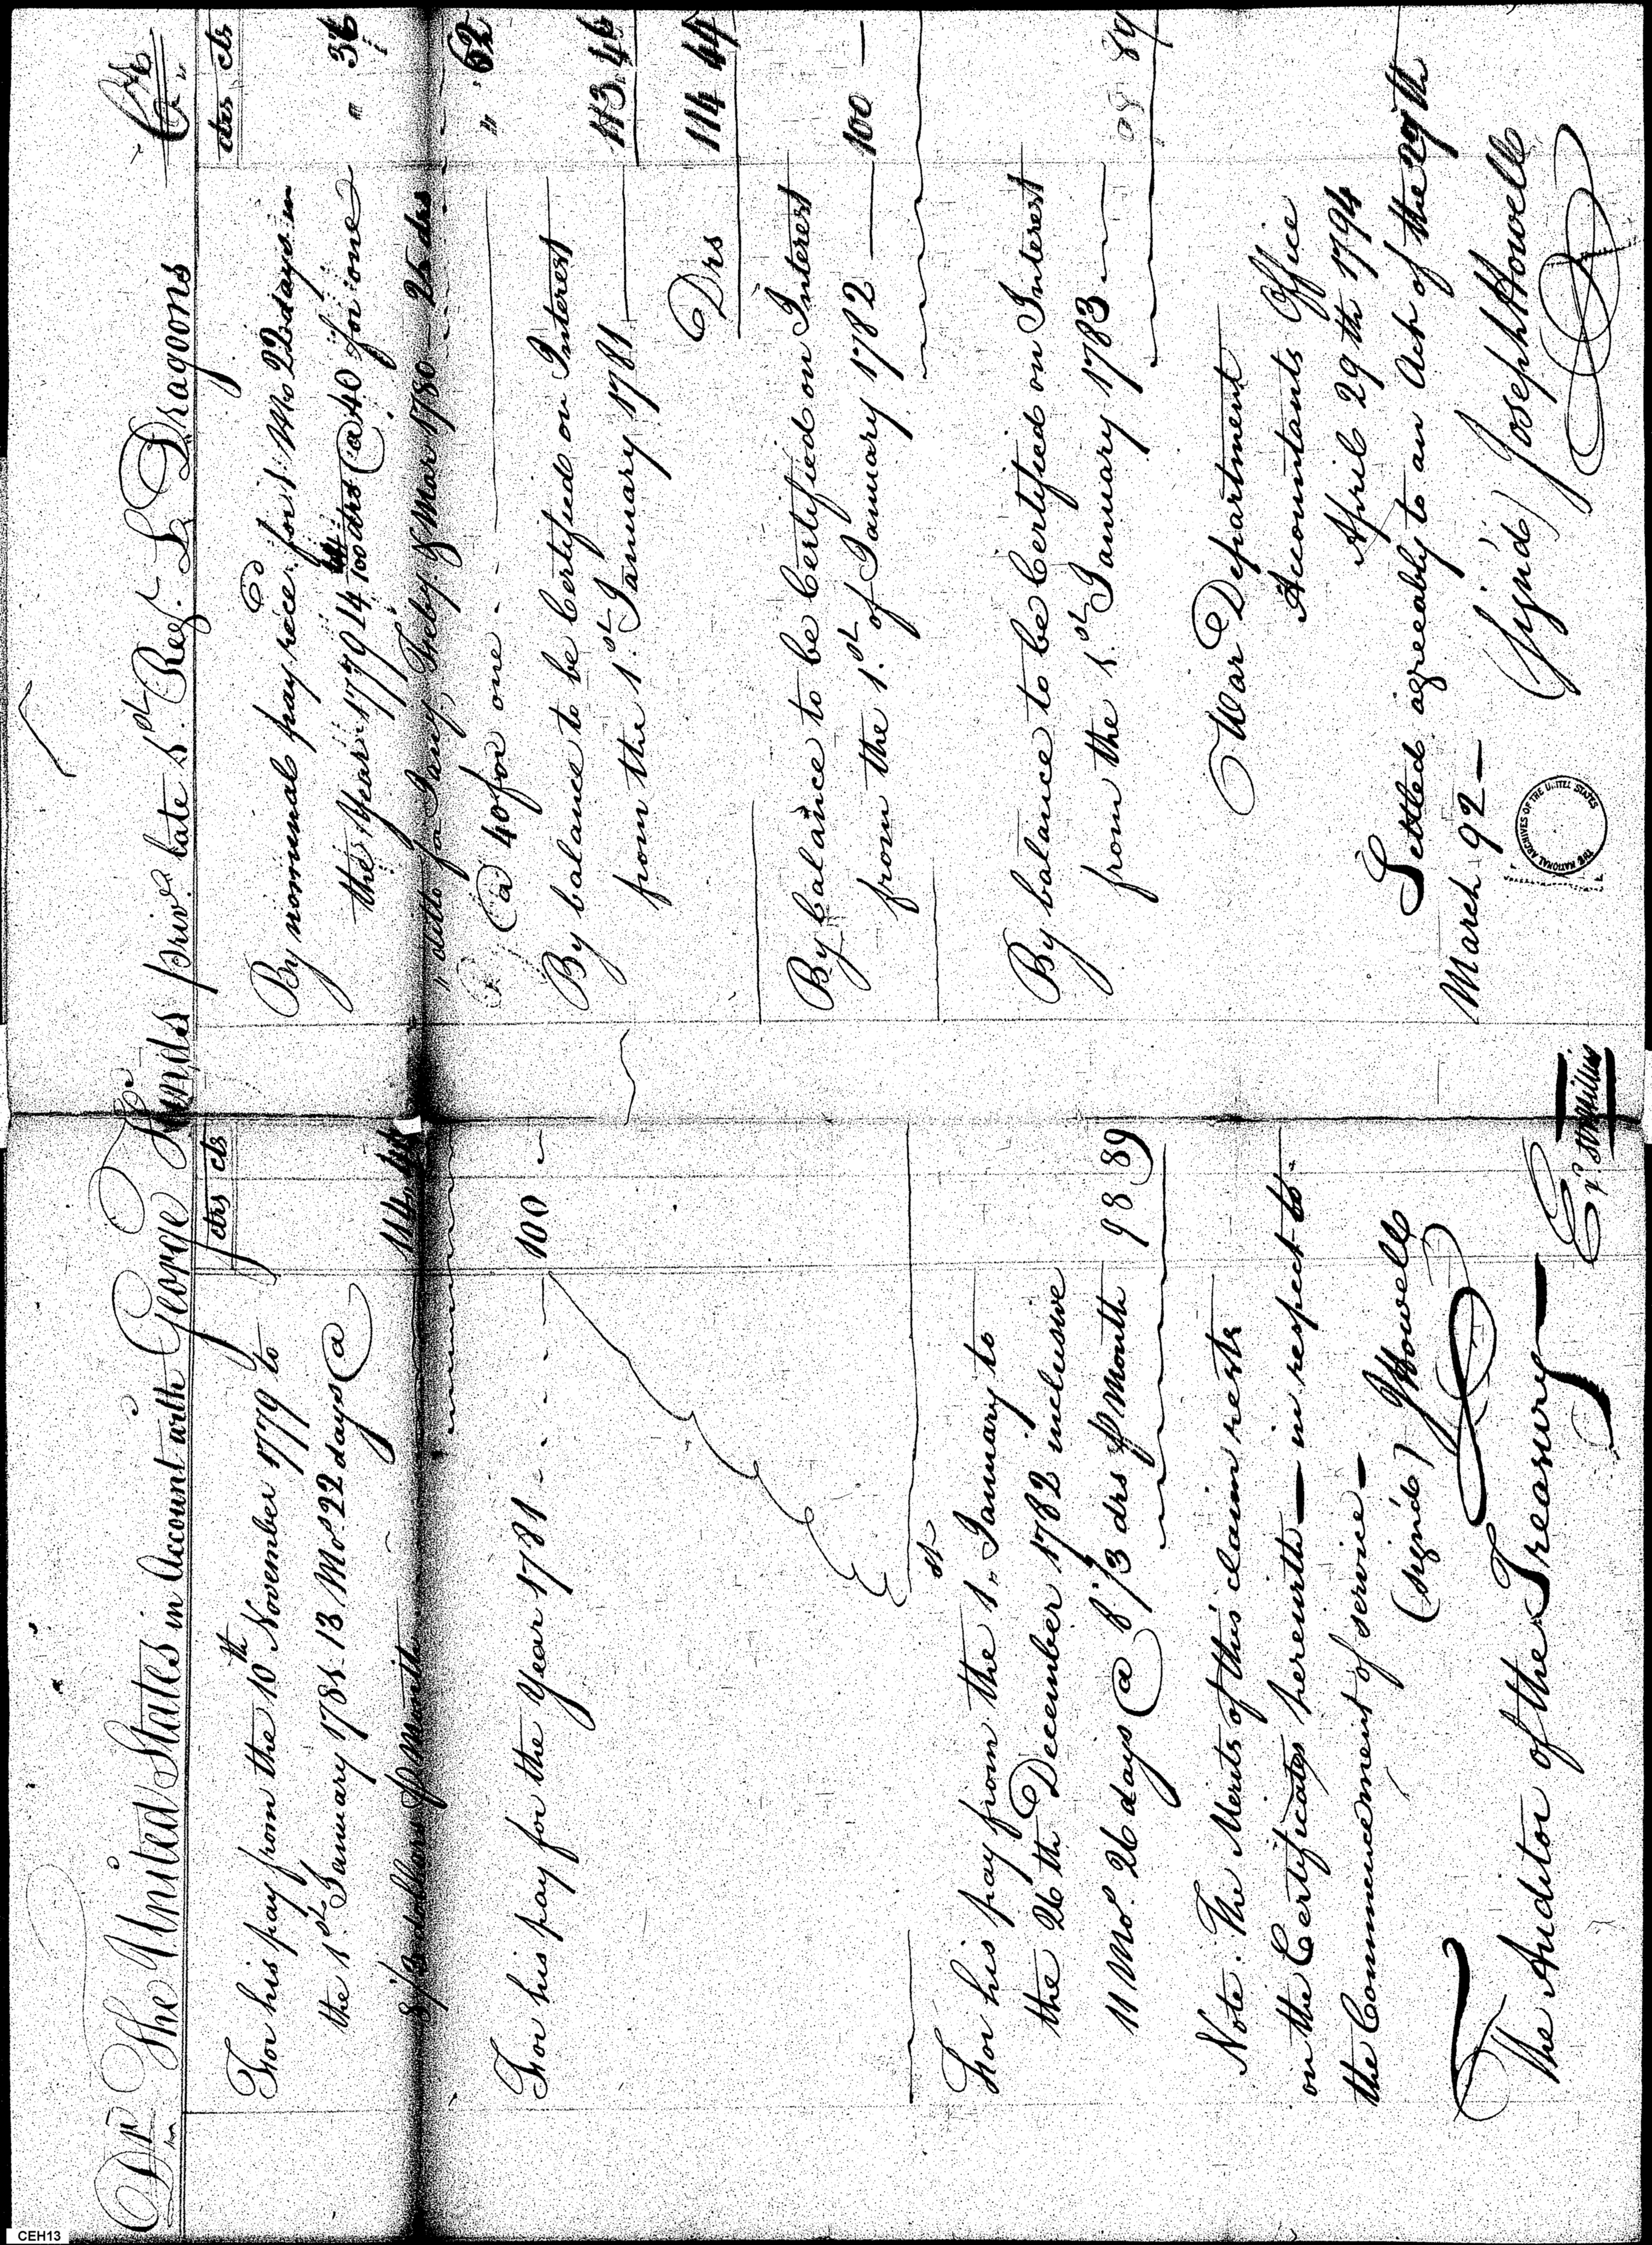 Dr. The United States in Account with George Kinds priv. late 1.st Reg. L. Dragoons Cr.
drs cts
For his pay from the 10th November 1779 to
the 1.st January 1781. 13 Mos. 22 days @
8 1/3 dollars Pr Month 114.44
For his pay for the Year 1781 - - - - 100 -
For his pay from the 1.st January to
the 26th December 1782 inclusive
11 Mos. 26 days @ 8 1/3 drs Pr Month 98 89
Note. The Merits of this claim rests
on the Certificates herewith — in respect to
the Commencement of service —
(signd) JHowell
The Auditor of the Treasury —
drs cts
By nominal pay rece.d for 1 Mo 22 days in
the Year 1779 14 44/100 drs @ 40 for one " 36
" ditto for Jany, Feby. & Mar 1780 25 drs
@ 40 for one - - " 62
By balance to be Certified on Interest
from the 1.st January 1781 — 113.46
Drs 114 44
By balance to be Certified on Interest
from the 1.st of January 1782 — 100 —
By balance to be Certified on Interest
from the 1.st January 1783 98 89
War Department
Accountants Office
April 29th 1794
Settled agreeably to an Act of the 27th
March 92 —
(Sign'd) Joseph Howell
THE NATIONAL ARCHIVES OF THE UNITED STATES
CEH13